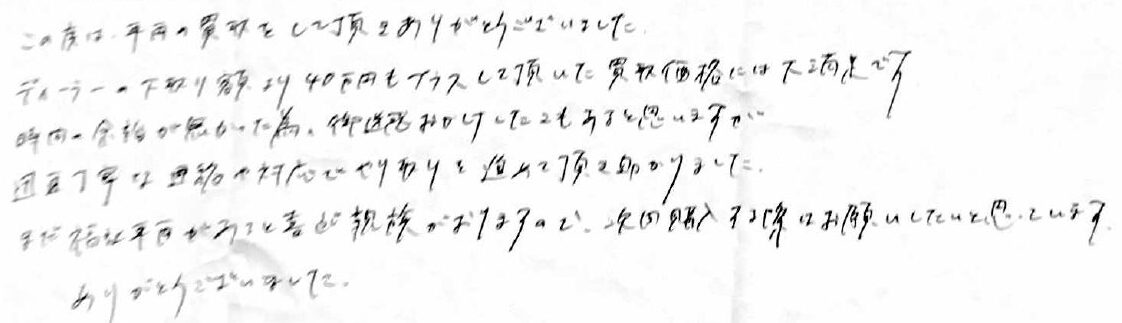 この度は、車両の買取をして頂きありがとうございました。
ディーラーの下取り額より40万円もプラスして頂いた買取価格には大満足です
時間の余裕が無かった為、御迷惑おかけしたこともあると思いますが
迅速丁寧な連絡や対応でやり取りを進めて頂き助かりました。
また福祉車両があると喜ぶ親族がおりますので、次回購入する際はお願いしたいと思っています。
ありがとうございました。